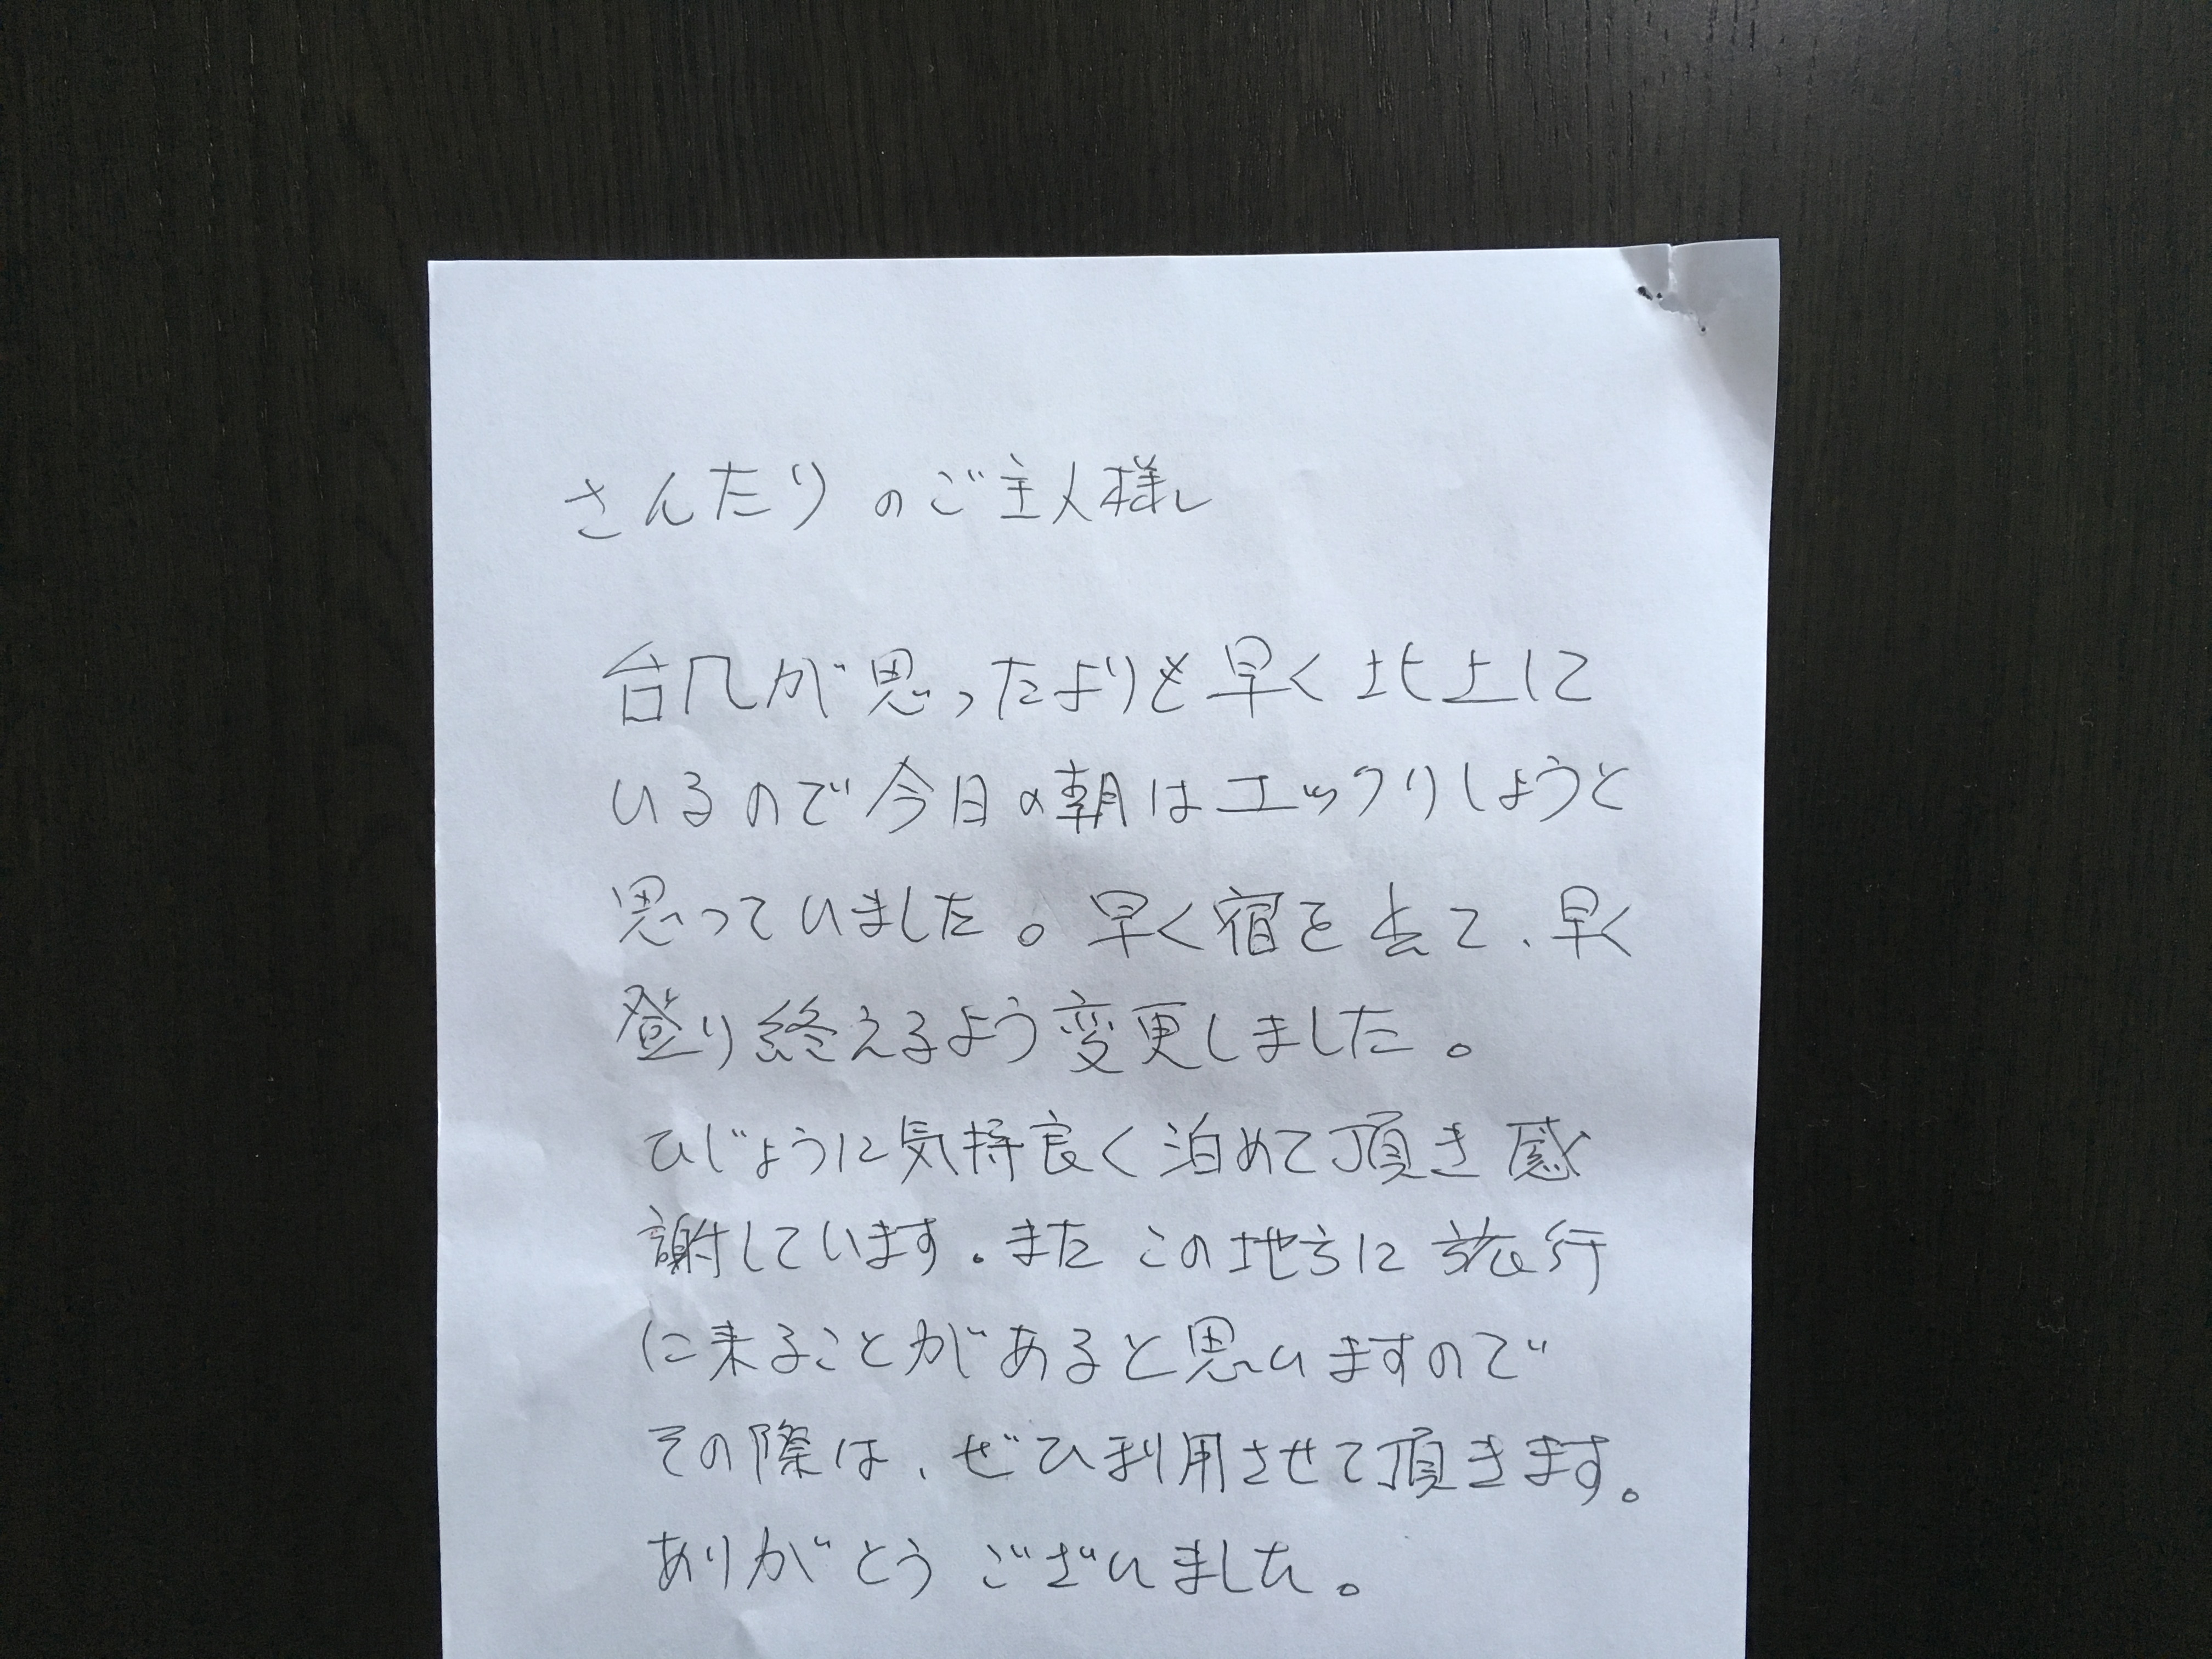 さんたりのご主人様へ
台風が思ったよりも早く北上して
いるので今日の朝はユックリしようと
思っていました。早く宿を出て、早く
登り終えるよう変更しました。
ひじょうに気持良く泊めて頂き感
謝しています。またこの地方に旅行
に来ることがあると思いますので
その際は、ぜひ利用させて頂きます。
ありがとうございました。